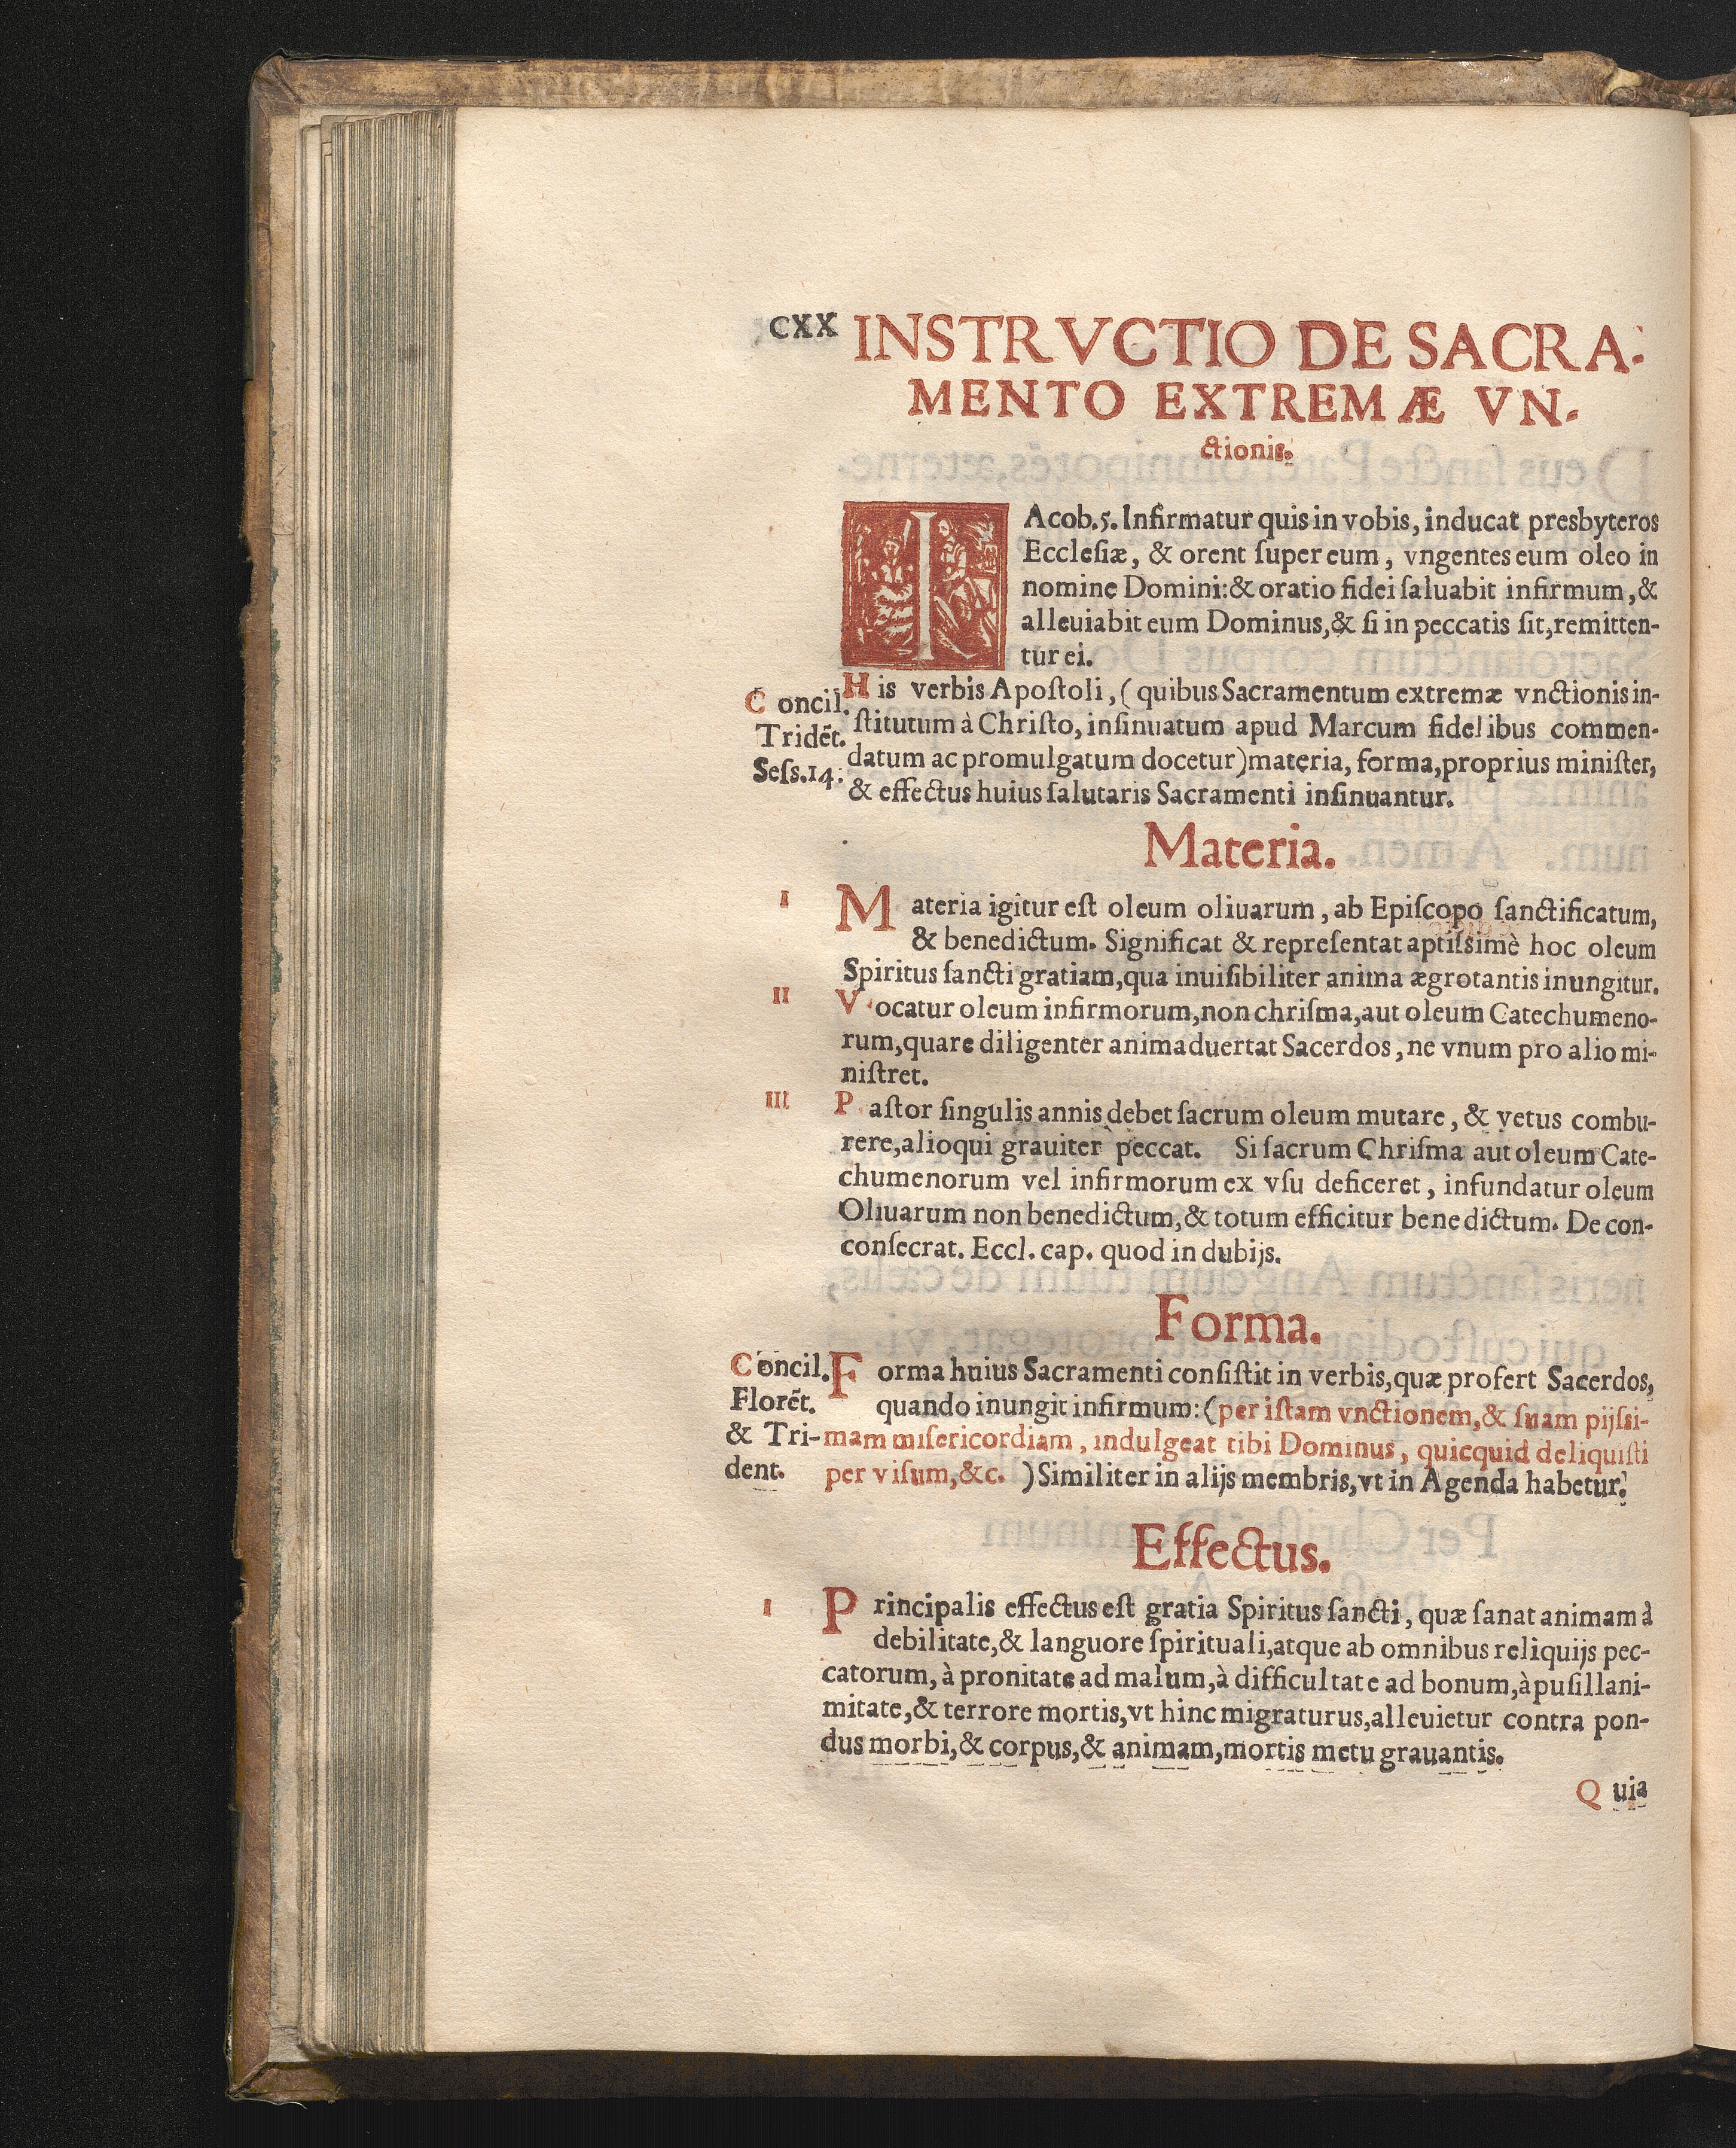 CXX INSTRVCTIO DE SACRA-
MENTO EXTREMÆ VN-
ctionis.
IAcob.5. Infirmatur quis in vobis, inducat presbyteros
Ecclesiæ, & orent ſuper eum, vngentes eum oleo in
nomine Domini:& oratio fidei ſaluabit infirmum,&
alleuiabit eum Dominus,& ſi in peccatis ſit,remitten-
tur ei.
Concil.
Tridēt.
Seſs.14.
His verbis Apoſtoli, (quibus Sacramentum extremæ vnctionis in-
ſtitutum à Chriſto, inſinuatum apud Marcum fidelibus commen-
datum ac promulgatum docetur)materia, forma,proprius miniſter,
& effectus huius ſalutaris Sacramenti inſinuantur.
Materia.
I Materia igitur eſt oleum oliuarum, ab Epiſcopo ſanctificatum,
& benedictum. Significat & repreſentat aptiſsimè hoc oleum
Spiritus ſancti gratiam,qua inuiſibiliter anima ægrotantis inungitur.
II Vocatur oleum infirmorum,non chriſma,aut oleum Catechumeno-
rum,quare diligenter animaduertat Sacerdos, ne vnum pro alio mi-
niſtret.
III Paſtor ſingulis annis debet ſacrum oleum mutare, & vetus combu-
rere,alioqui grauiter peccat. Si ſacrum Chriſma aut oleum Cate-
chumenorum vel infirmorum ex vſu deficeret, infundatur oleum
Oliuarum non benedictum,& totum efficitur benedictum. De con-
conſecrat. Eccl. cap. quod in dubijs.
Forma.
Concil.
Florēt.
& Tri-
dent.
Forma huius Sacramenti conſiſtit in verbis,quæ profert Sacerdos,
quando inungit infirmum: (per iſtam vnctionem,& ſuam pijſsi-
mam miſericordiam, indulgeat tibi Dominus, quicquid deliquiſti
per viſum,&c. ) Similiter in alijs membris,vt in Agenda habetur.
Effectus.
I Principalis effectus eſt gratia Spiritus ſancti, quæ ſanat animam à
debilitate,& languore ſpirituali,atque ab omnibus reliquijs pec-
catorum, à pronitate ad malum,à difficultate ad bonum,à puſillani-
mitate,& terrore mortis,vt hinc migraturus,alleuietur contra pon-
dus morbi,& corpus,& animam,mortis metu grauantis.
Quia